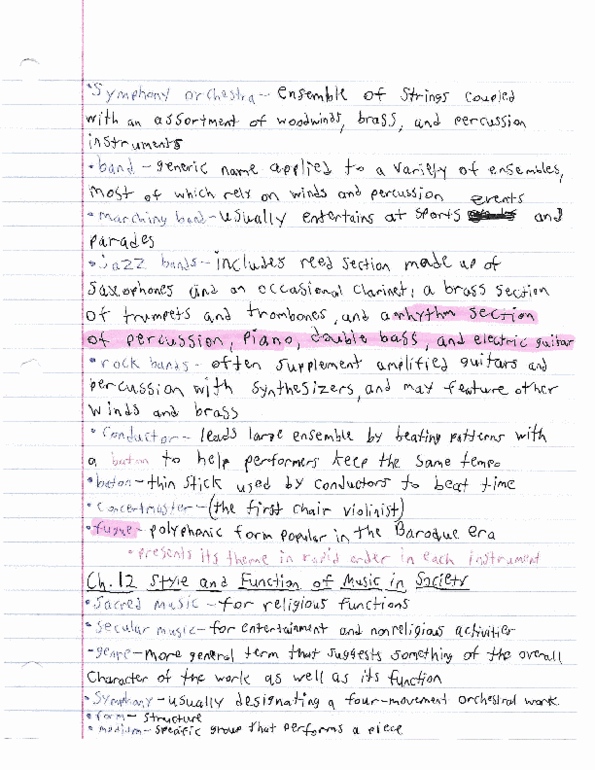 • Symphony orchestra - ensemble of strings coupled
with an assortment of woodwinds, brass, and percussion
instruments
• band - generic name applied to a variety of ensembles,
most of which rely on winds and percussion events
• marching band - usually entertains at sports and
parades
• jazz bands - includes reed section made up of
saxophones and an occasional clarinet; a brass section
of trumpets and trombones, and a rhythm section
of percussion, piano, double bass, and electric guitar
• rock bands - often supplement amplified guitars and
percussion with synthesizers, and may feature other
winds and brass
• Conductor - leads large ensemble by beating patterns with
a baton to help performers keep the same tempo
• baton - thin stick used by conductors to beat time
• Concertmaster - (the first chair violinist)
• fugue - polyphonic form popular in the Baroque era
• presents its theme in rapid order in each instrument
Ch. 12 Style and Function of Music in Society
• Sacred music - for religious functions
• Secular music - for entertainment and nonreligious activities
- genre - more general term that suggests something of the overall
Character of the work as well as its function
• Symphony - usually designating a four-movement orchestral work.
• form - structure
• medium - specific group that performs a piece